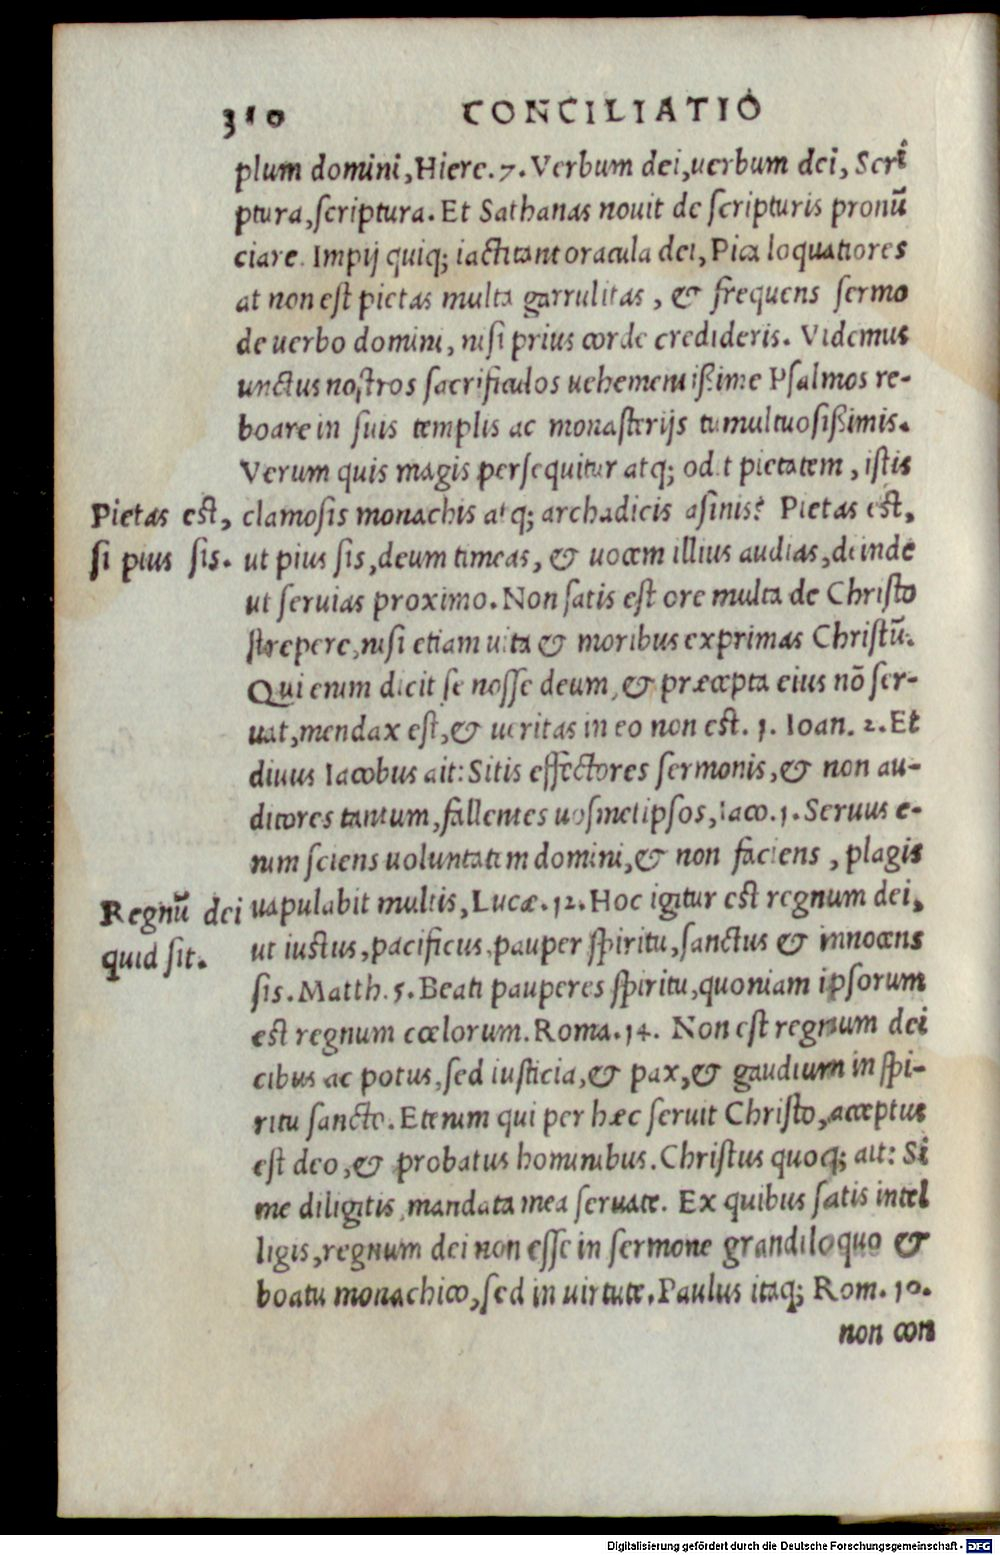 310 CONCILIATIO
plum domini, Hiere. 7. Verbum dei, uerbum dei, Scri
ptura, scriptura. Et Sathanas nouit de scripturis pronũ
ciare. Impij quiq; iactitant oracula dei, Pica loquatiores
at non est pietas multa garrulitas, & frequens sermo
de uerbo domini, nisi prius corde credideris. Videmus
unctus nostros sacrificulos uehementißime Psalmos re-
boare in suis templis ac monasterijs tumultuosißimis.
Verum quis magis persequitur atq; odit pietatem, istis
Pietas est,
si pius sis.
clamosis monachis atq; archadicis asinis? Pietas est,
ut pius sis, deum timeas, & uocem illius audias, deinde
ut seruias proximo. Non satis est ore multa de Christo
strepere, nisi etiam uita & moribus exprimas Christũ.
Qui enim dicit se nosse deum, & præcepta eius nõ ser-
uat, mendax est, & ueritas in eo non est. 1. Ioan. 2. Et
diuus Iacobus ait: Sitis effectores sermonis, & non au-
ditores tantum, fallentes uosmetipsos, Iaco. 1. Seruus e-
nim sciens uoluntatem domini, & non faciens, plagis
Regnũ dei
quid sit.
uapulabit multis, Lucæ. 12. Hoc igitur est regnum dei,
ut iustus, pacificus, pauper spiritu, sanctus & innocens
sis. Matth. 5. Beati pauperes spiritu, quoniam ipsorum
est regnum cœlorum. Roma. 14. Non est regnum dei
cibus ac potus, sed iusticia, & pax, & gaudium in spi-
ritu sancto. Etenim qui per hæc seruit Christo, acceptus
est deo, & probatus hominibus. Christus quoq; ait: Si
me diligitis, mandata mea seruate. Ex quibus satis intel
ligis, regnum dei non esse in sermone grandiloquo &
boatu monachico, sed in uirtute. Paulus itaq; Rom. 10.
non con
Digitalisierung gefördert durch die Deutsche Forschungsgemeinschaft - DFG